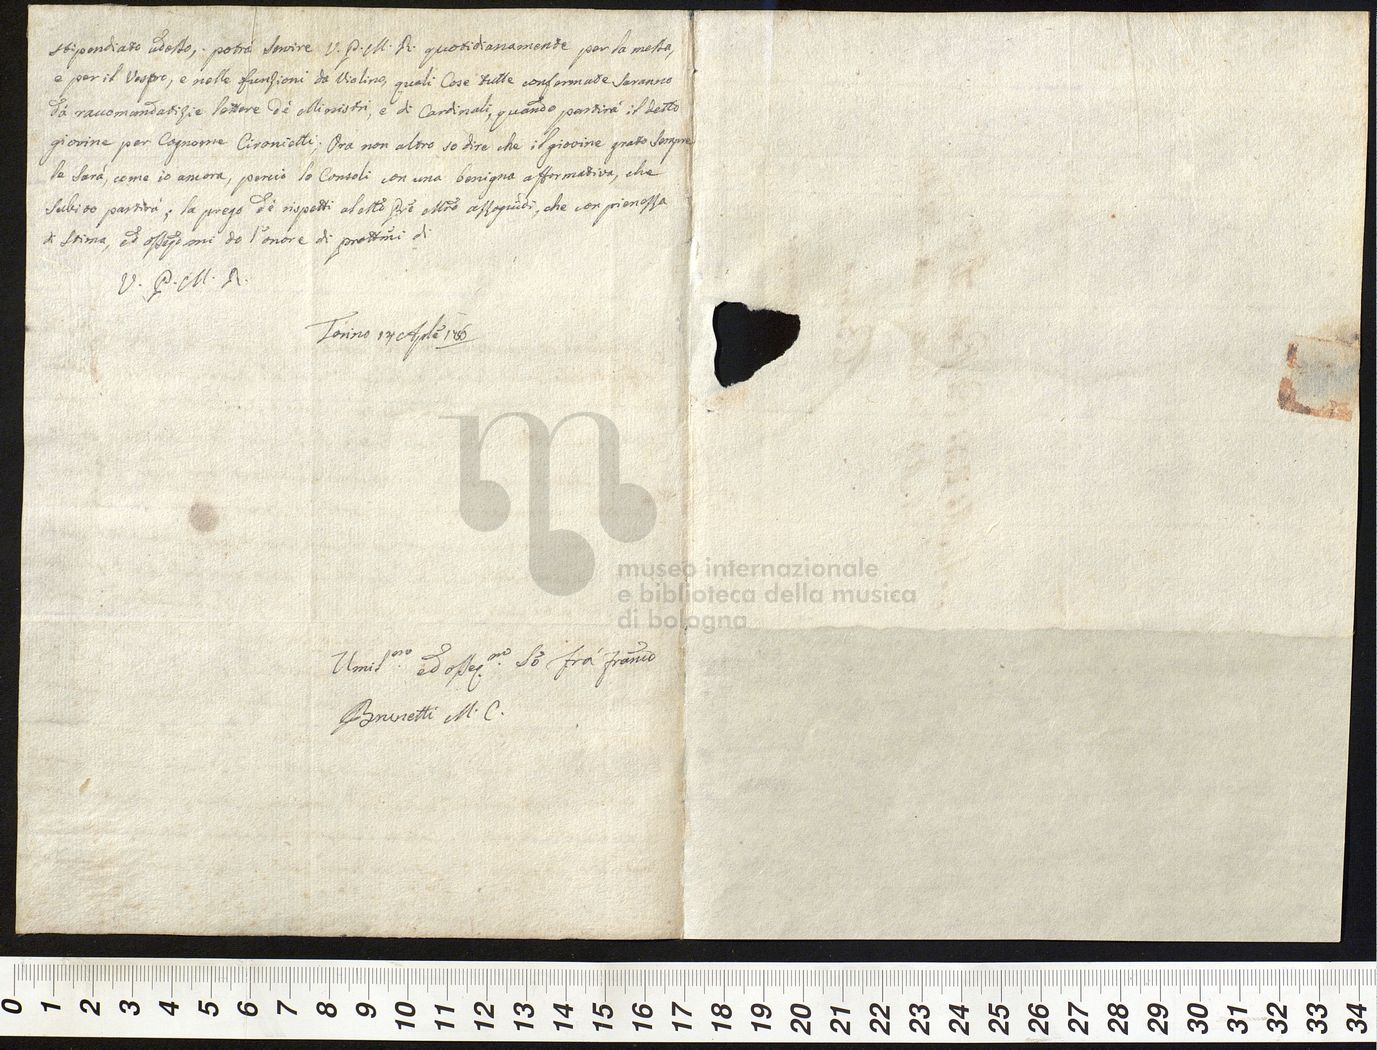 stipendiato adesso, potrà servire V. P. M. R. quotidianamente per la messa,
e per il Vespro, e nelle funzioni da Violino, quali Cose tutte confermate saranno
dà raccomandatizie lettere dé Ministri, e di Cardinali, quando partirà il detto
giovine per Cognome Cironietti; Ora non altro so dire che il giovine grato sempre
le sarà, come io ancora, perciò lo Consoli con una benigna affermativa, che
subito partirà; la prego dé rispetti al
di stima, ed do l'onore di di
V. P. M. R.
Torino Aple
Umil.mo ed osseq.mo So frà Franco
Brunetti M. C.
museo internazionale
e biblioteca della musica
di bologna
0 1 2 3 4 5 6 7 8 9 10 11 12 13 14 15 16 17 18 19 20 21 22 23 24 25 26 27 28 29 30 31 32 33 34